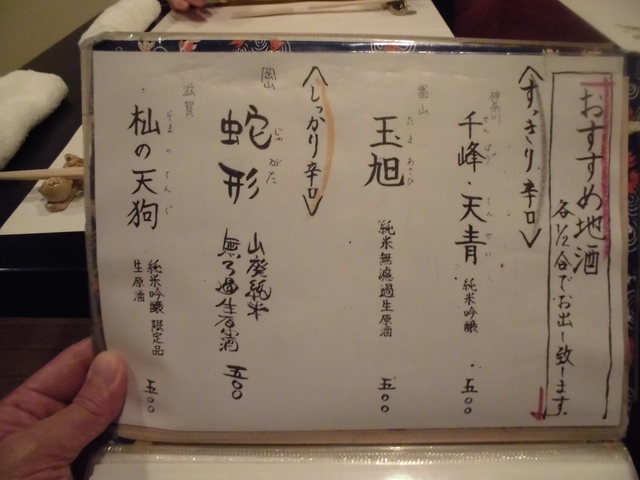 おすすめ地酒
各1/2合でお出し致します。
<すっきり辛口>
神奈川
千峰・天青 純米吟醸 ・五〇〇
せんぽう てんせい
富山
玉旭 純米無濾過生原酒 五〇〇
たまあさひ
<しっかり辛口>
岡山
蛇形 山廃純米
じゃがた
無ろ過生原酒 五〇〇
滋賀
杣の天狗 純米吟醸 限定品
そまのてんぐ
生原酒 五〇〇